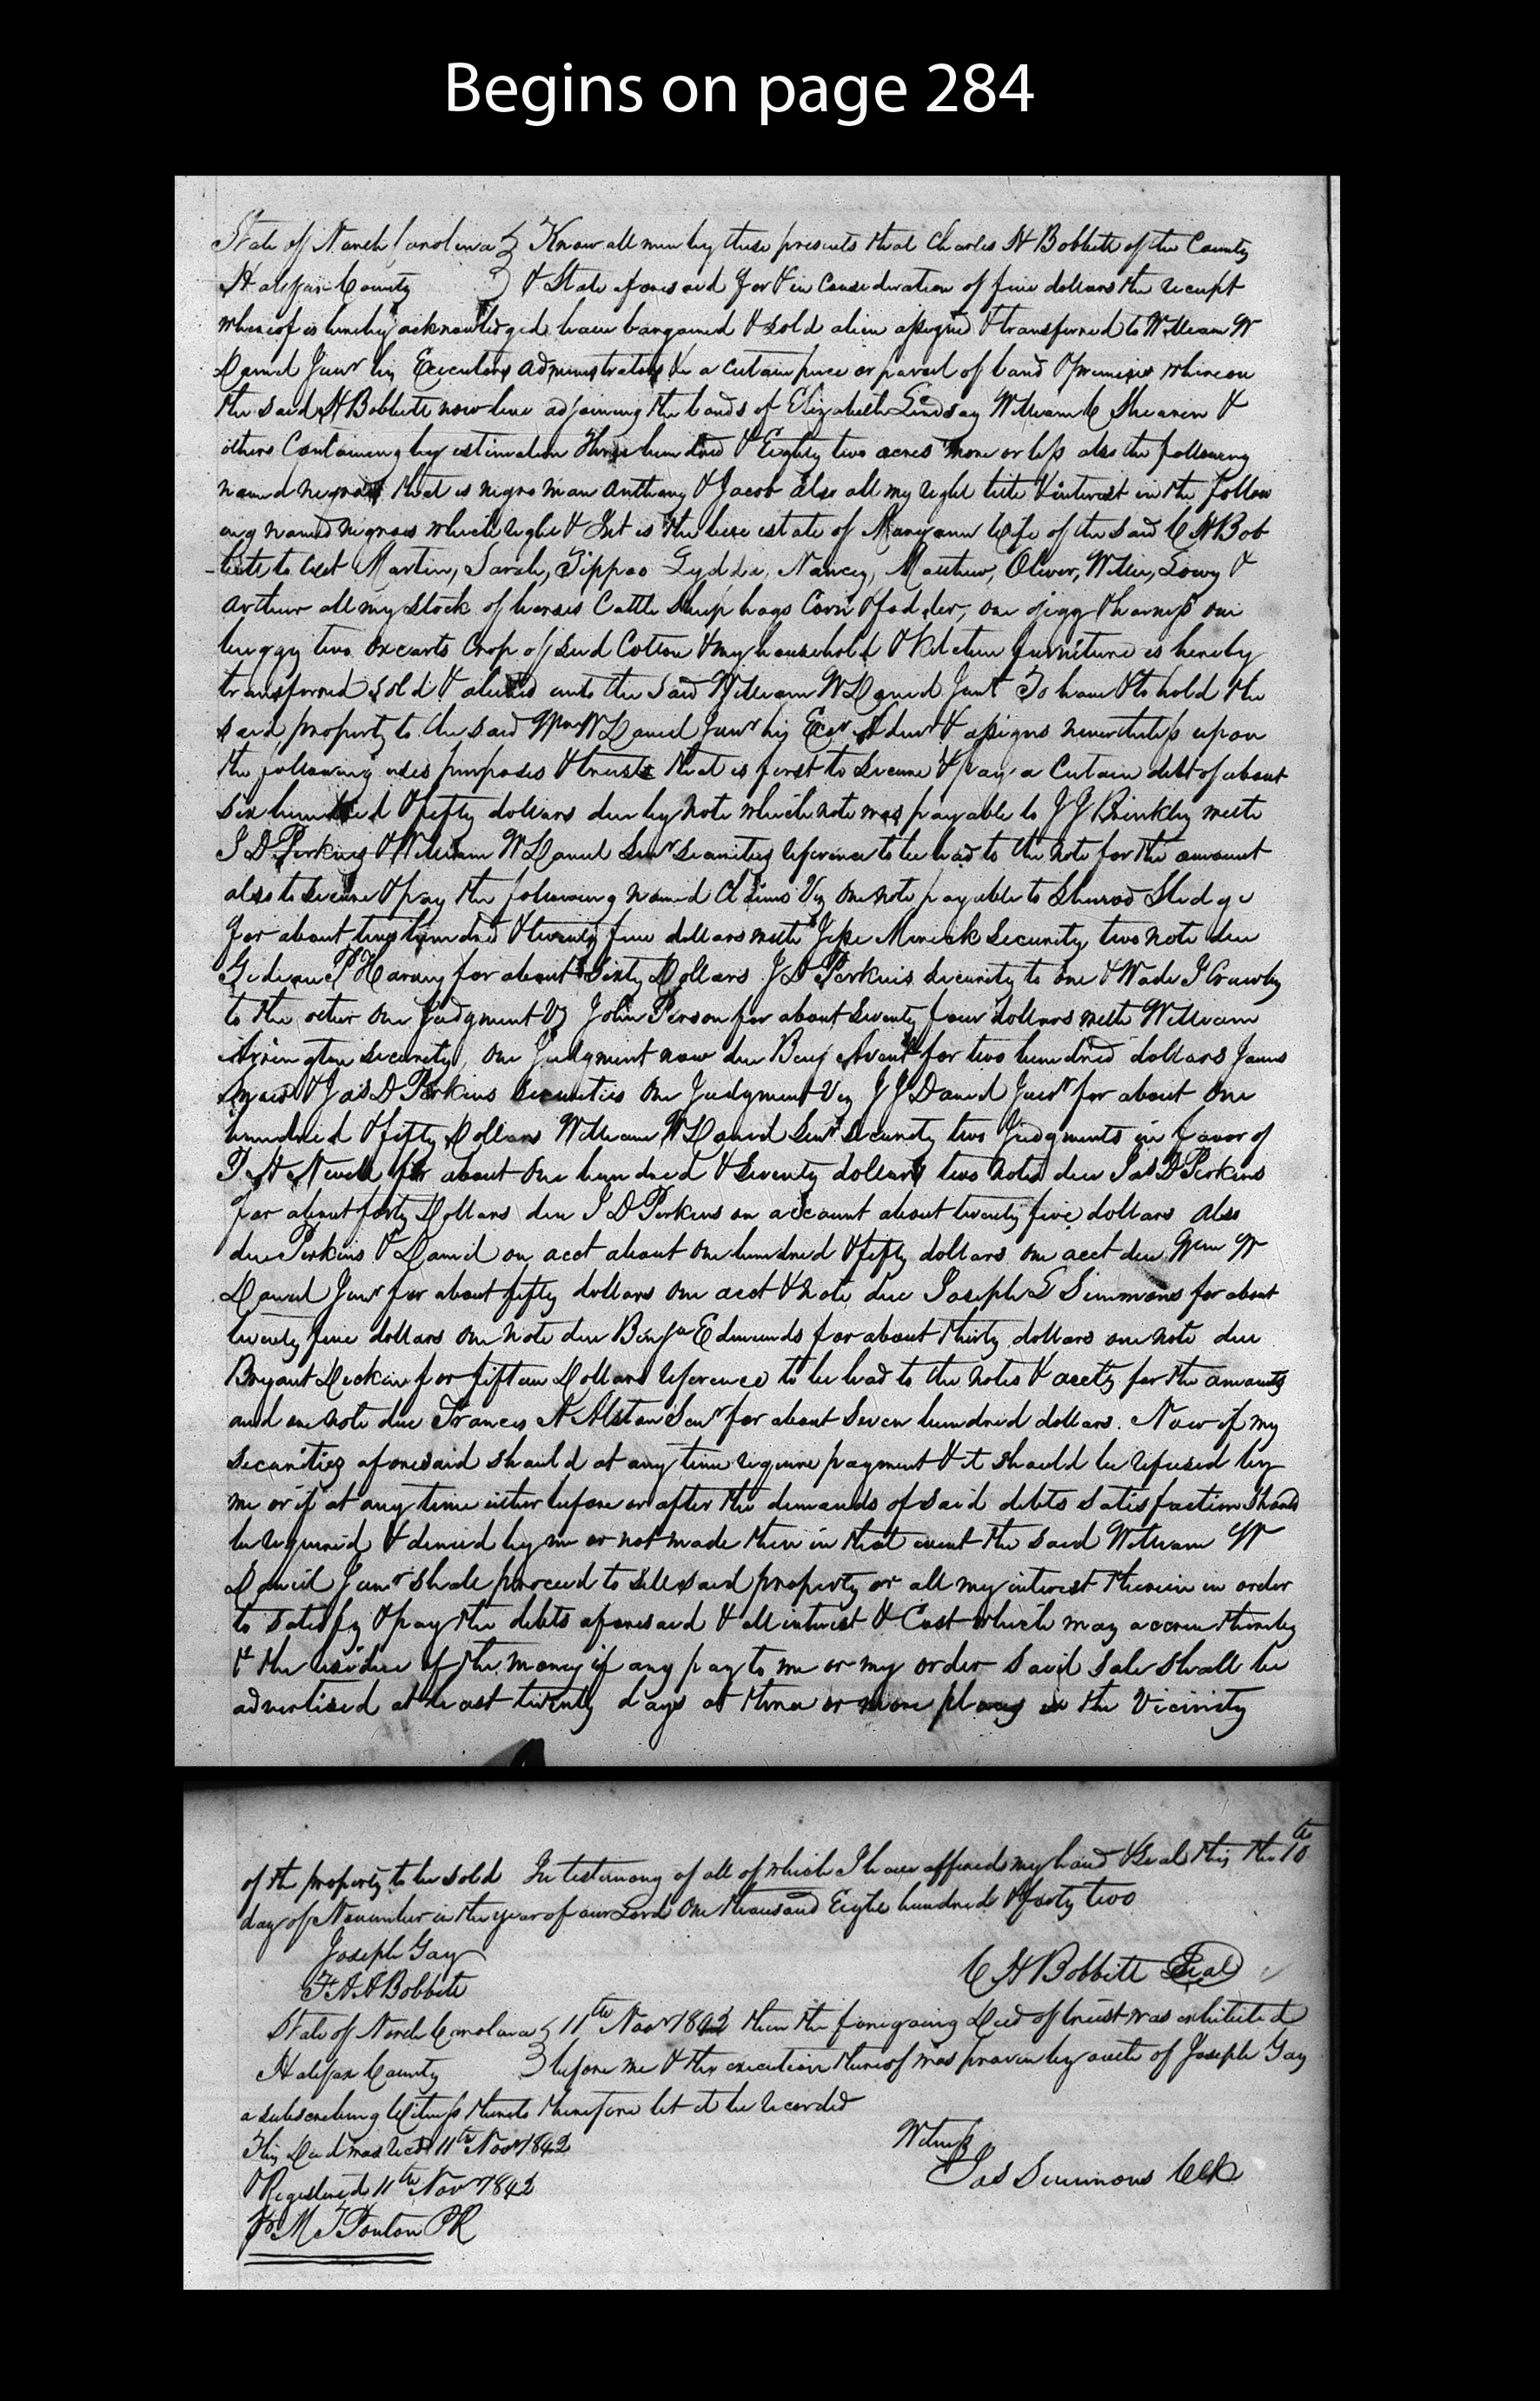 Begins on page 284
State of North Carolina } Know all men by these presents that Charles H Bobbitt of the County
Halifax County } & State aforesaid for & in consideration of five dollars the receipt
whereof is hereby acknowledged have bargained & sold alien assigned & transferred to William W
Daniel Junr his Executors administrators &c a certain piece or parcel of land & premises whereon
the said H Bobbitt now live adjoining the lands of Elizabeth Lindsay William C Shearin &
others Containing by estimation Three hundred & Eighty two acres more or less also the following
named negroes that is negro man Anthony & Jacob also all my right title & interest in the follow
ing named negroes which right & Int is the life estate of Maryann Wife of the said C H Bob
bitt to wit Martin, Sarah, Lydda, Nancy, Matthew, Oliver, Willie, &
Arthur all my stock of horses Cattle sheep hogs Corn & fodder, one gigg & harness one
buggy two oxcarts Crop of seed Cotton & my household & Kitchen furniture is hereby
transferred sold & aliened unto the said William W Daniel Junr To have & to hold the
said property to the said Wm W Daniel Junr his Exer Admr & assigns nevertheless upon
the following uses purposes & trusts that is first to secure & pay a certain debt of about
six hundred & fifty dollars due by note which note was payable to J J Brinkley with
J D Perkins & William W Daniel Senr securities reference to be had to the note for the amount
also to secure & pay the following named Claims Viz one note payable to Sherrod Sledge
for about hundred & twenty five dollars with Jesse security, two note due
Gideon P Harvey for about Sixty Dollars J D Perkins security to one & Wade J Crawley
to the other one Judgment Viz John Person for about seventy four dollars with William
Arrington security, one Judgment now due Benj Avent for two hundred dollars James
& Jas D Perkins securities one Judgment Viz J J Daniel Junr for about one
hundred & fifty Dollars William W Daniel Senr security two Judgments in favor of
H Nevell for about one hundred & seventy dollars two notes due Jas D Perkins
for about forty Dollars due J D Perkins on account about twenty five dollars also
due Perkins & Daniel on acct about one hundred & fifty dollars one acct due Wm W
Daniel Junr for about fifty dollars one acct & note due Joseph Simmons for about
twenty five dollars one note due Benja Edmunds for about thirty dollars one note due
Bryant for fifteen Dollars reference to be had to the notes & accts for the amounts
and one note due Francis A Alston Senr for about Seven hundred dollars. Now if my
Securities aforesaid should at any time require payment & it should be refused by
me or if at any time either before or after the demands of said debts satisfaction should
be required & denied by me or not made then in that event the said William W
Daniel Junr shall proceed to sell said property or all my interest therein in order
to satisfy & pay the debts aforesaid & all interest & Cost which may accrue thereby
& the residue of the money if any pay to me or my order said sale shall be
advertised at least twenty days at three or more places in the Vicinity
of the property to be sold In testimony of all of which I have affixed my hand & seal this the 10th
day of November in the year of our Lord One thousand Eight hundred & forty two
Joseph Gay
F A A Bobbitt
C H Bobbitt Seal
State of North Carolina } 11th Novr 1842 then the foregoing Deed of trust was exhibited
Halifax County } before me & the execution thereof was proven by oath of Joseph Gay
a subscribing Witness thereto therefore let it be recorded
This Deed was Recd 11th Novr 1842
& Registered 11th Novr 1842
Witness
Jas Simmons Clk
Pr M T Ponton PR